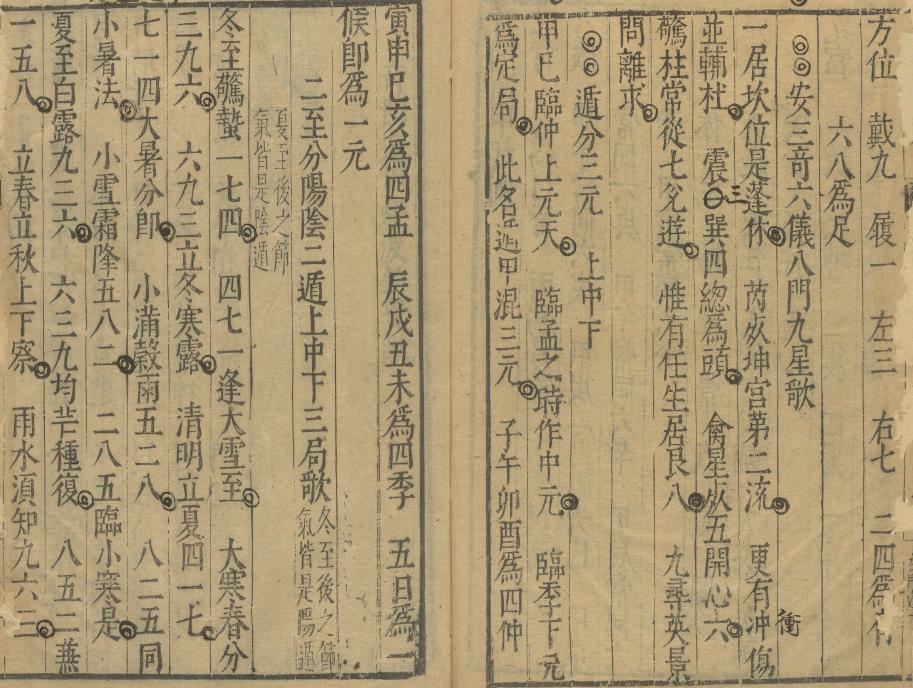 方位 戴九 履一 左三 右七 二四為肩
六八為足
◎◎安三竒六儀八門九星歌
一居坎位是蓬休 芮灰坤宫第二流 更有冲傷
衝
並輔杜 震三巽四總為頭 禽星灰五開心六
驚柱常從七兊遊 惟有任生居艮八 九尋英景
問離求
◎◎遁分三元 上中下
甲己 臨仲上元天 臨孟之時作中元 臨季下元
為定局 此名遁甲混三元 子午卯酉為四仲
寅申巳亥為四孟 辰戌丑未為四季 五日為一
候卽為一元
二至分陽陰二遁上中下三局歌 冬至後之節氣皆是陽遁
夏至後之節氣皆是陰遁
冬至驚蟄一七四 四七一逢大雪至 大寒春分
三九六 六九三立冬寒露 清明立夏四一七
七一四大暑分卽 小滿穀雨五二八 八二五同
小暑法 小雪霜降五八二 二八五臨小寒是
夏至白露九三六 六三九均芒種復 八五二蕪
一五八 立春立秋上下察 雨水湏知九六三